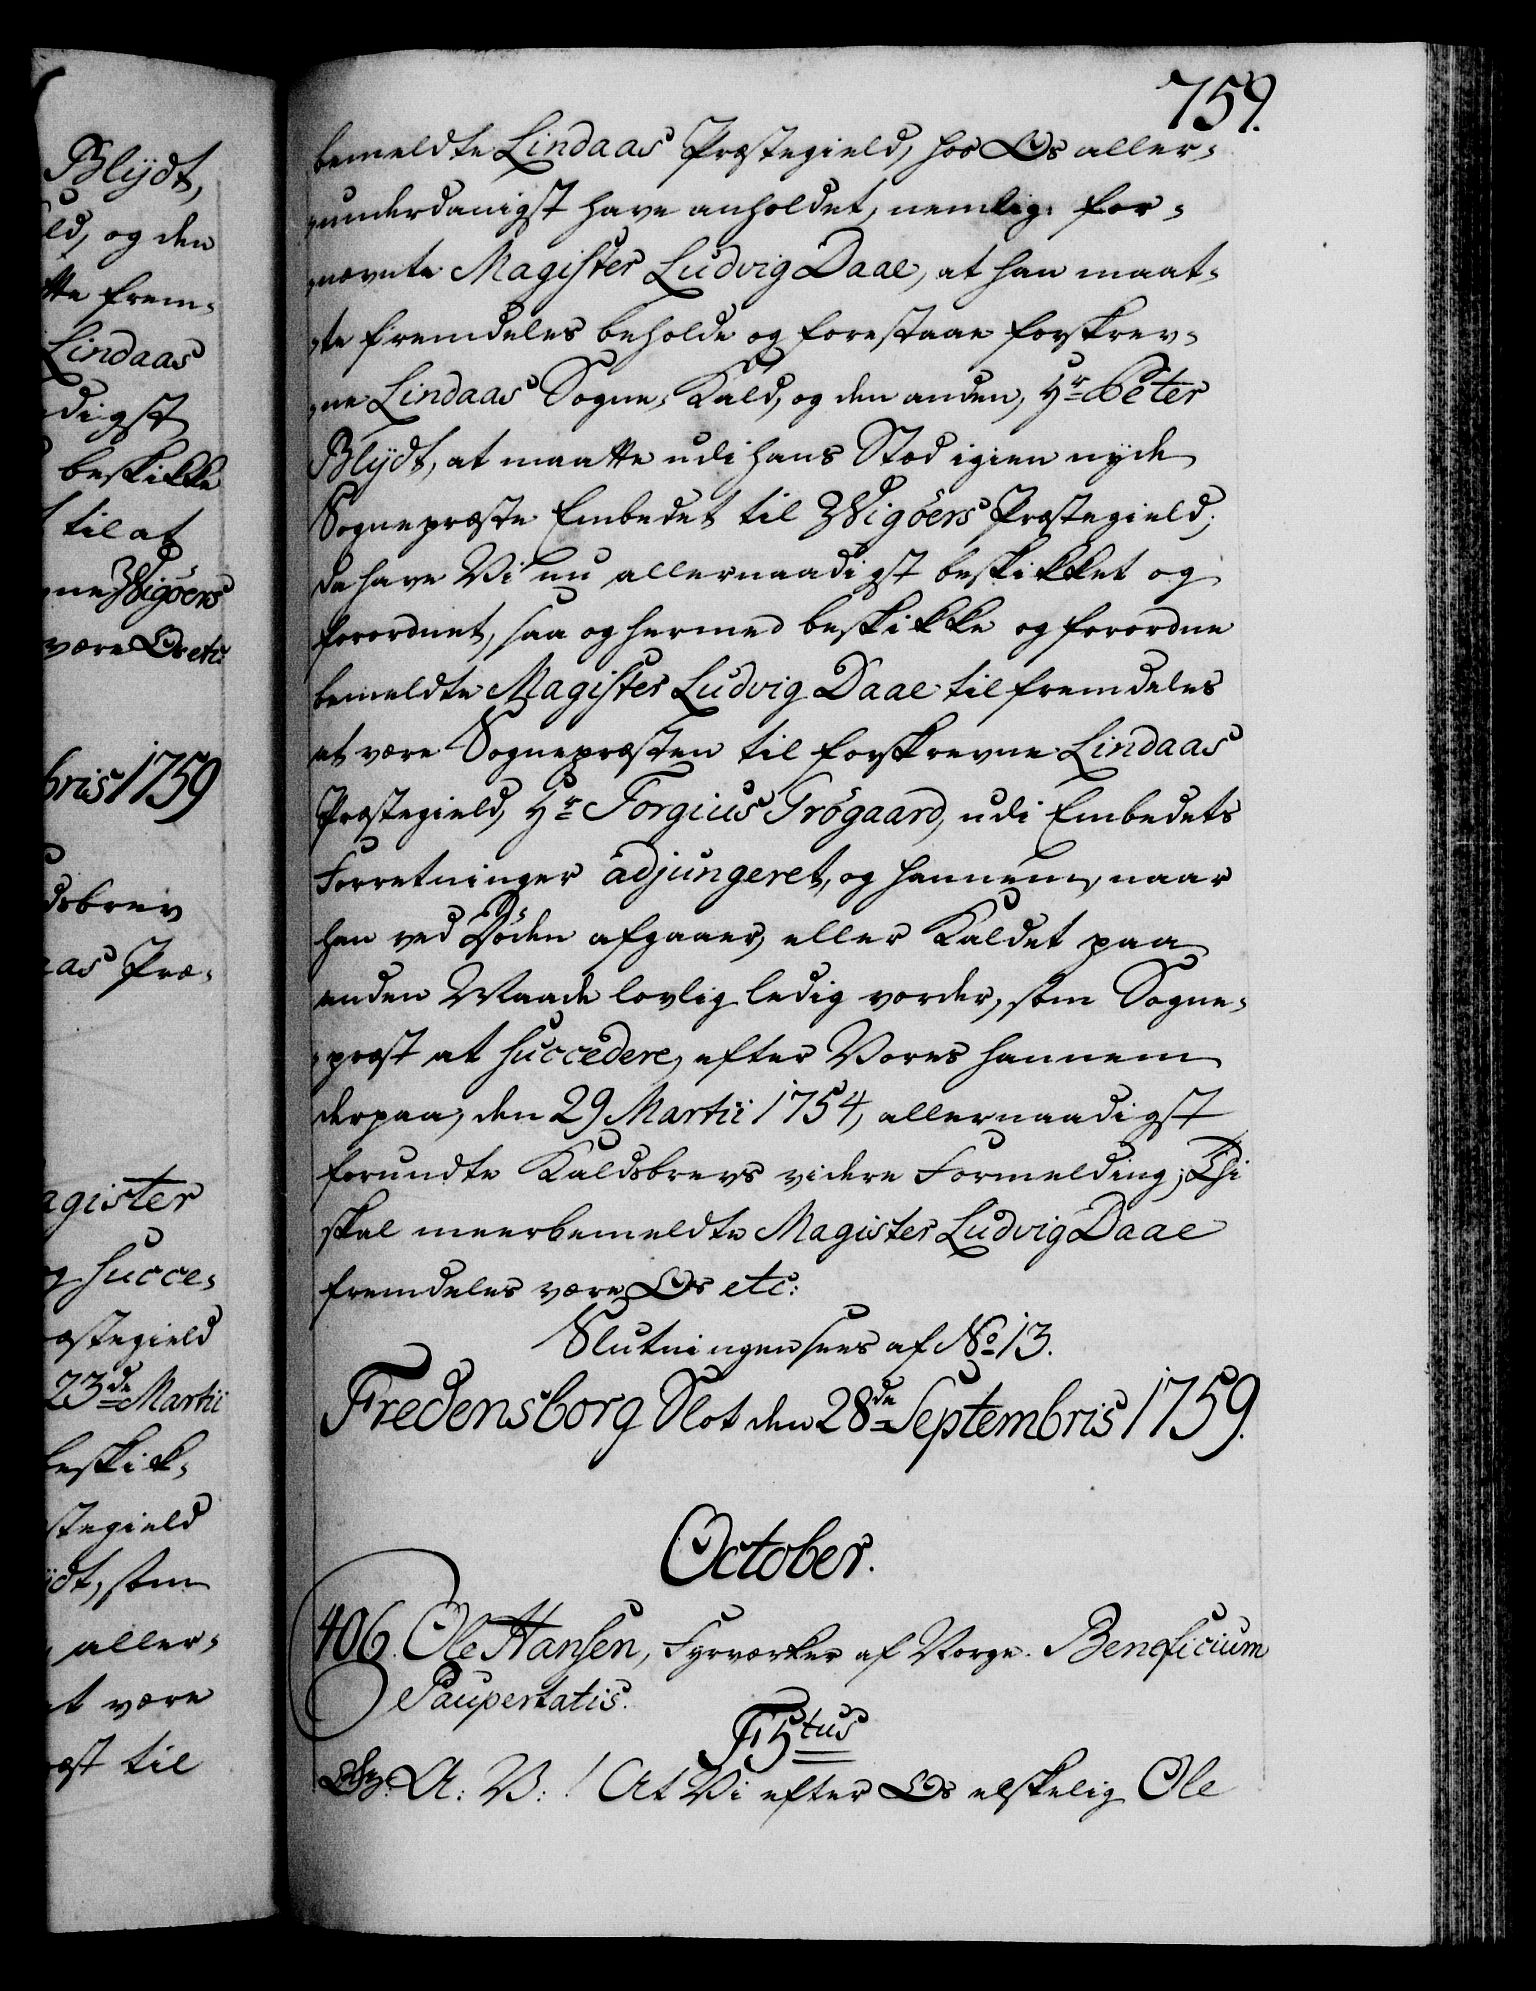 Blÿdt,
ld, og den
tte frem-
Lindaas
digst
beskikke
til at
ne Wigöers
være Os etc:
bris 1759
dsbrev
aas Præ-
agister
og succe-
æstegield
23de Martii
beskik-
stegield
ÿdt, som
aller-
at være
æst til
759.
bemeldte Lindaas Præstegield, hos Os aller-
-underdanigst have anholdet, nemlig: for-
-nævnte Magister Ludvig Daae, at han maat-
-te fremdeles beholde og forestaae forskrev-
-ne Lindaas Sogne-Kald, og den anden, Hr Peter
Blÿdt, at maatte udi hans Stæd igien nyde
Sognepræste Embedet til Wigöers Præstegield;
da have Vi nu allernaadigst beskikket og
forordnet, saa og hermed beskikke og forordne
bemeldte Magister Ludvig Daae til fremdeles
at være Sognepræsten til forskrevne Lindaas
Præstegield, Hr Torgius Trögaard, udi Embedets
Forretninger adjungeret, og hannem, naar
han ved Döden afgaaer, eller Kaldet paa
anden Maade lovlig ledig vorder, som Sogne-
-præst at succedere, efter Vores hannem
derpaa, den 29 Martii 1754, allernaadigst
forundte Kaldsbrevs videre Formelding; Thi
skal meerbemeldte Magister Ludvig Daae
fremdeles være Os etc:
Slutningen sees af No 13.
Fredensborg Slot den 28de Septembris 1759.
October.
406. Ole Hansen, Fyrværker af Norge. Beneficium
Paupertatis.
F5tus
G: A: V:! At Vi efter Os elskelig Ole